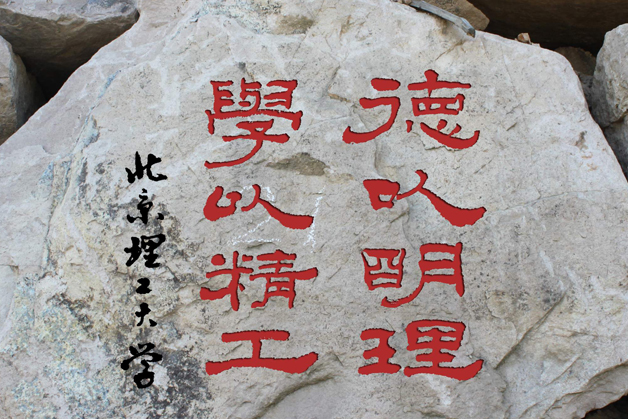 德以明理
學以精工
北京理工大学